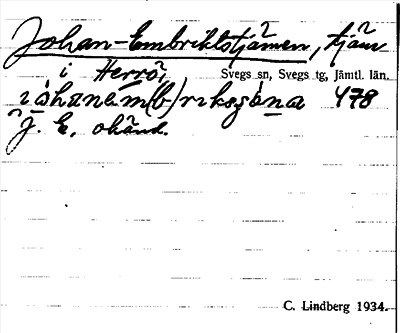 Johan-Embriktstjärnen, tjärn
i Herrö, Svegs sn, Svegs tg, Jämtl. län.
478
J. E. okänd.
C. Lindberg 1934.